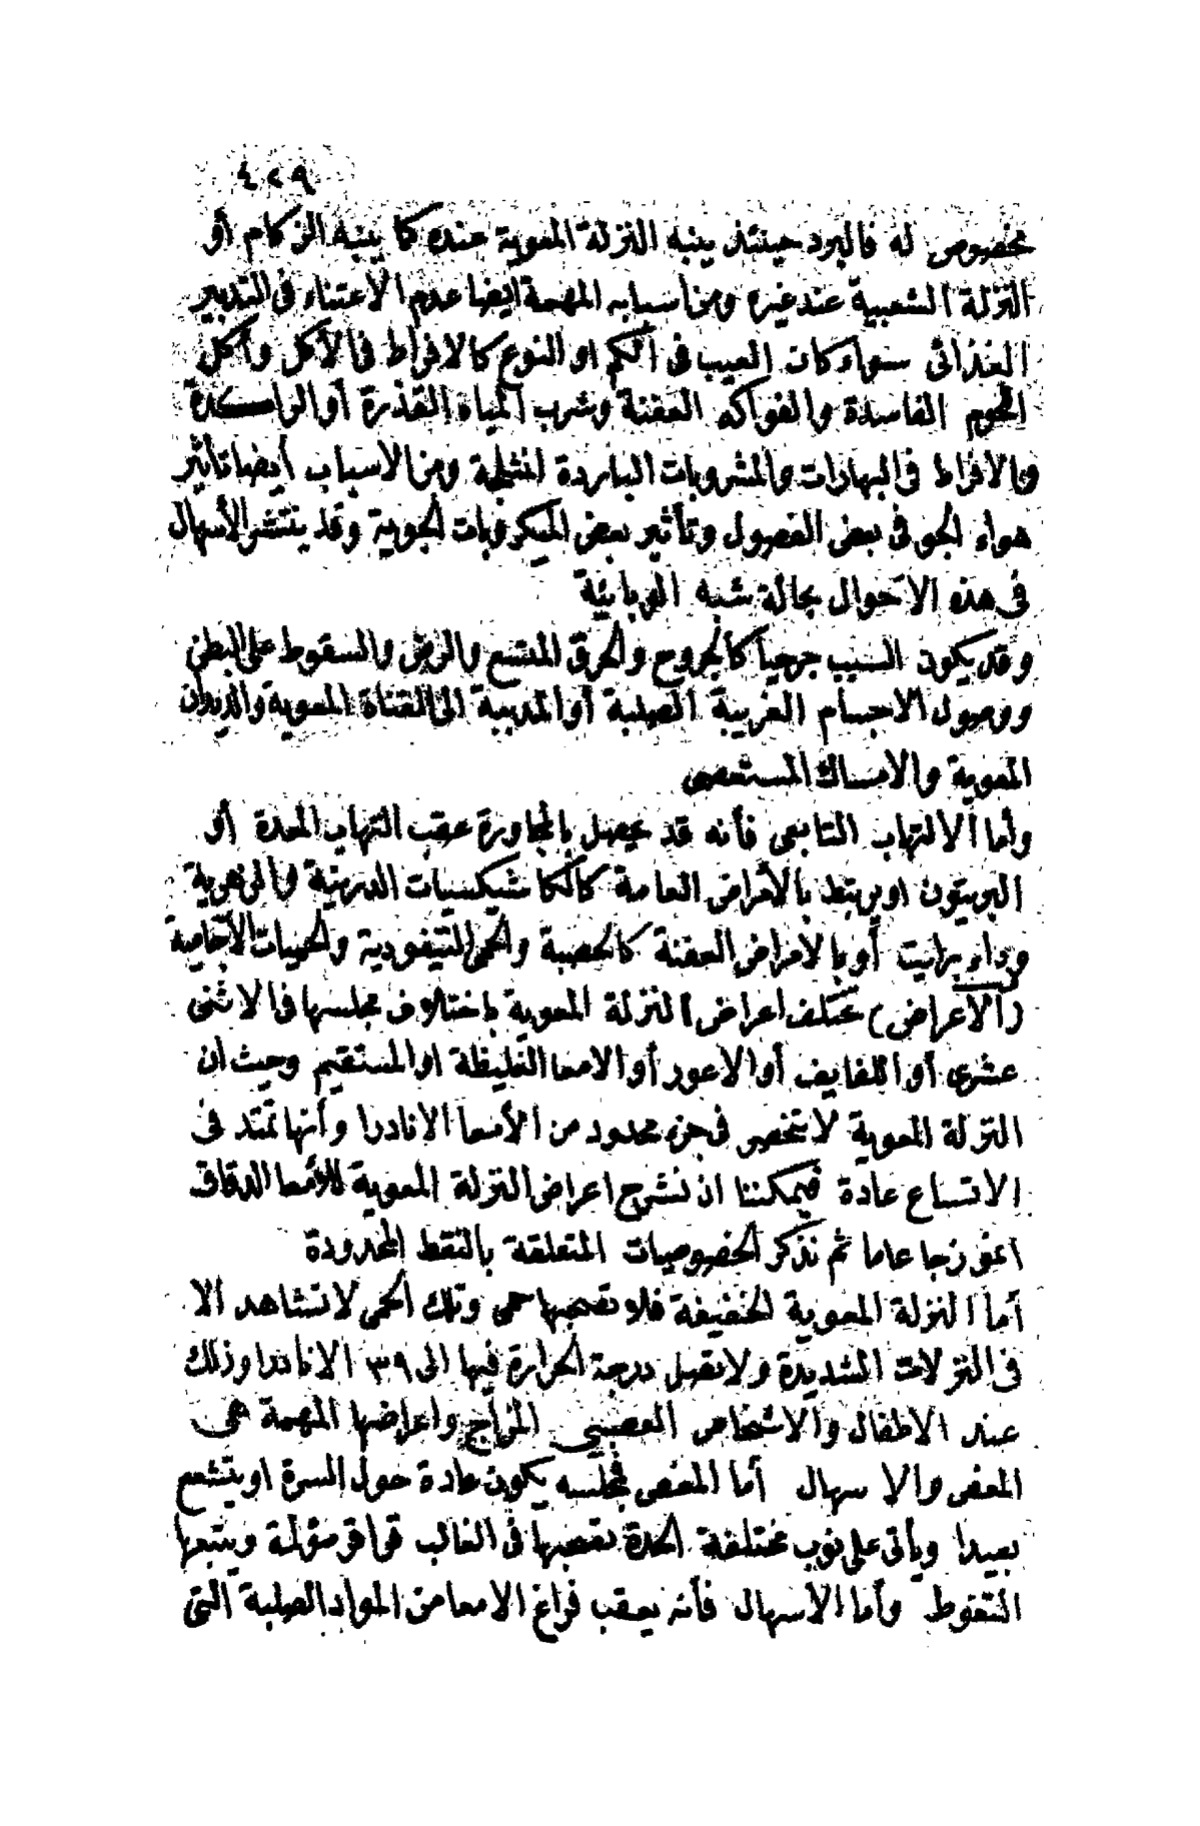 ٤٢٩
مخصوص له فالبرد حينئذ ينبه النزلة المعوية عنده كما ينبه الزكام أو
النزلة الشعبية عند غيره ومن أسبابه المهمة ايضا عدم الاعتناء فى التدبير
الغذائى سواء كان العيب فى الكم او النوع كالافراط فى الأكل وأكل
اللحوم الفاسدة والفواكه العفنة وشرب المياه القذرة أو الراكدة
والافراط فى البهارات والمشروبات الباردة المثلجة ومن الاسباب أيضا تأثير
هواء الجو فى بعض الفصول وتأثير بعض الميكروبات الجوية وقد ينتشر الأسهال
فى هذه الاحوال بحالة شبه الوبائية
وقد يكون السبب جرحيا كالجروح والحرق المتسع والرض والسقوط على البطن
ووصول الاجسام الغريبة الصلبة أو المدببة الى القناة المعوية والديدان
المعوية والامساك المستعصى
وأما الالتهاب التابعى فأنه قد يحصل بالمجاورة عقب التهاب المعدة أو
البريتون او يرتبط بالأمراض العامة كالكاشيكسيات الدرنية والزهرية
وداء برايت أو بالامراض العفنة كالحصبة والحمى التيفودية والحميات الآجامية
(الأعراض) تختلف اعراض النزلة المعوية باختلاف مجلسها فى الاثنى
عشرى أو اللفايف أو الاعور أو الامعا الغليظة او المستقيم وحيث ان
النزلة المعوية لا تنحصر فى جزء محدود من الأمعا الا نادرا وأنها تمتد فى
الاتساع عادة فيمكننا ان نشرح اعراض النزلة المعوية للأمعا الدقاق
أنموزجا عاما ثم نذكر الخصوصيات المتعلقة بالنقط المحدودة
أما النزلة المعوية الخفيفة فلا تصحبها حمى وتلك الحمى لا تشاهد الا
فى النزلات الشديدة ولا تصل درجة الحرارة فيها الى ٣٩ الا نادرا وذلك
عند الاطفال والاشخاص العصبيى المزاج واعراضها المهمة هى
المغص والاسهال أما المغص فمجلسه يكون عادة حول السرة او يتشعع
بعيدا ويأتى على نوب مختلفة الحدة تصحبها فى الغالب قراقر مؤلمة ويتبعها
التغوط وأما الاسهال فأنه يعقب فراغ الامعا من المواد الصلبة التى